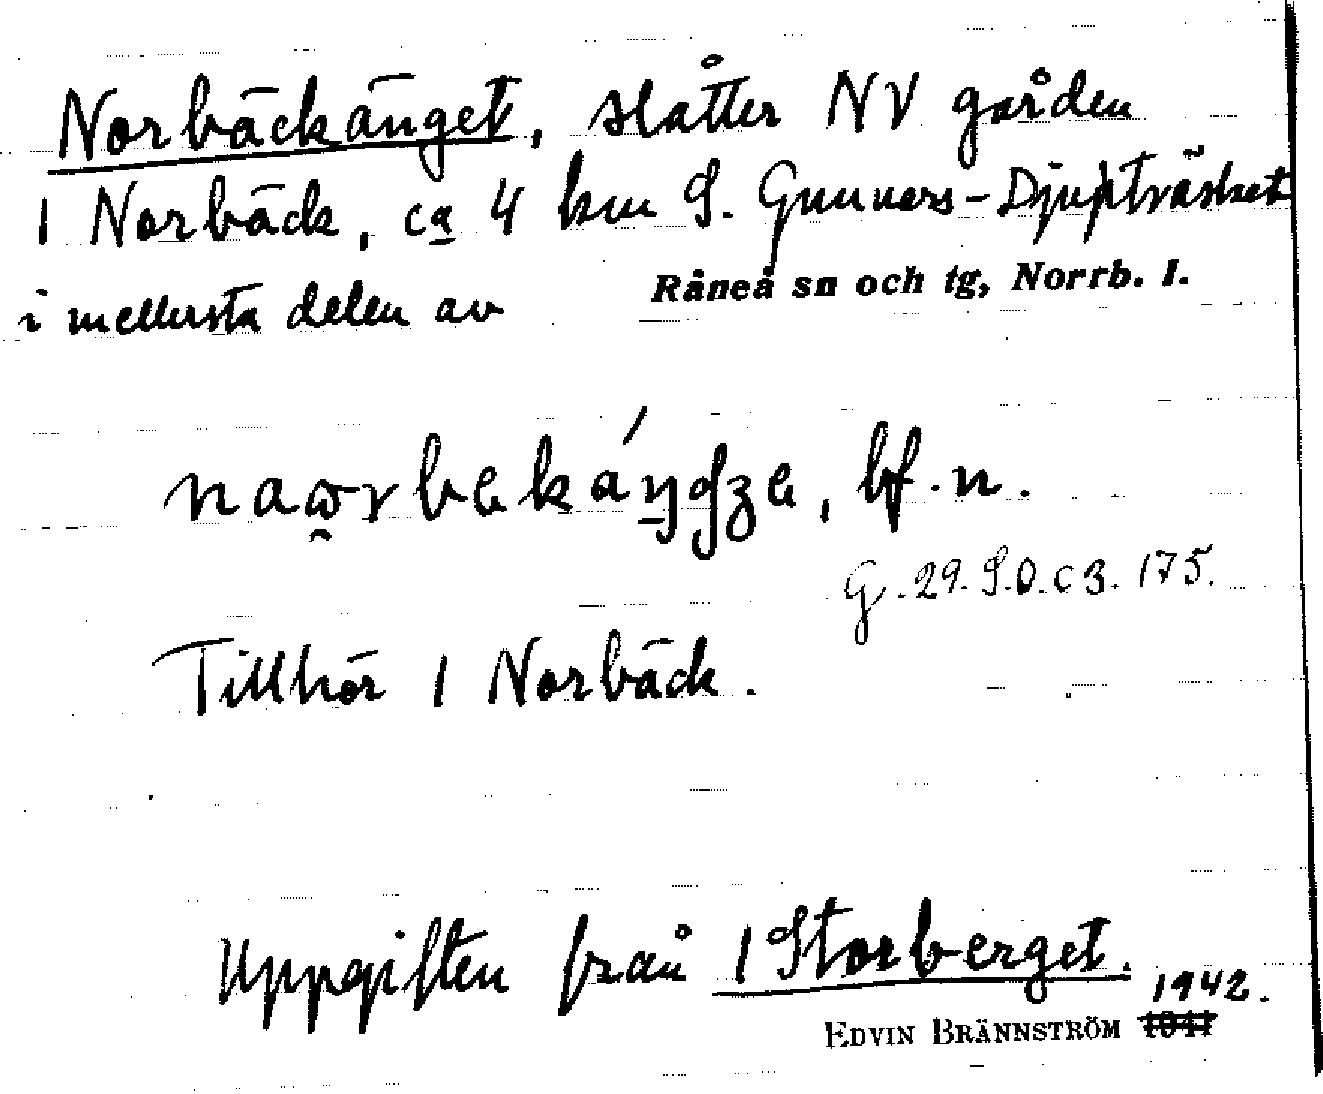 Norbäckänget, slåtter NV gården
1 Norbäck, ca 4 km S. Gunnars-Djupträsket
i mellersta delen av Råneå sn och tg, Norrb. l.
bf. n.
G. 29. S.O. C 3. 175.
Tillhör 1 Norbäck.
Uppgiften från 1 Storberget.
EDVIN BRÄNNSTRÖM 1942.